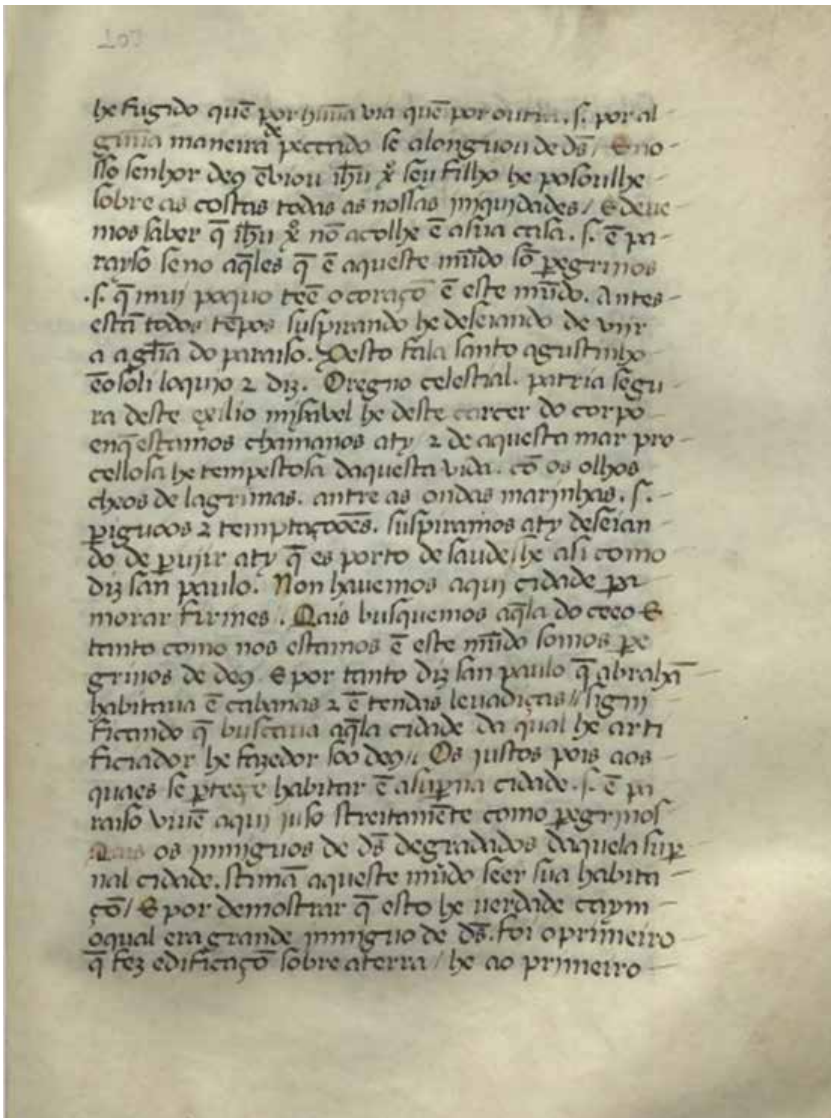 he fugido quē por hūna via quē por outra .ſ. por al-
guūa maneira de peccado ſe alonguou de dſ̄ / E no-
ſſo ſenhor deꝯ ēviou ih̄u xo̅ ſeu filho he poſoulhe
ſobre as coſtas todas as noſſas iniquidades / E deve
mos ſaber q̄ ih̄u xo̅ nō acolhe ē a ſua caſa .ſ. ē pa-
raiſo ſe no aq̄les q̄ ē aqueſte mūdo ſō ꝑegrinos
.ſ. q̄ mui poquo teē o coraçō ē eſte mūdo. Antes-
eſtā todos tēpos ſuſpirando he deſeiando de viir
a a gl̄ia do paraiſo. Deſto fala ſanto aguſtinho
ēo ſoli loquio ⁊ diz. O regno celeſtial. patria ſegu-
ra deſte exilio miſavel he deſte carcer do corpo
enq̄ eſtamos chamanos aty ⁊ de aqueſta mar pro-
celloſa he tempeſtoſa daqueſta vida. cō os olhos
cheos de lagrimas. antre as ondas marinhas. ſ.
ꝑiguoos ⁊ temptaçoões. ſuſpiramos aty deſeian-
do de ꝑvijr aty q̄ es porto de ſaude / he aſi como
diz ſan paulo. Non havemos aqui cidade ꝑa
morar firmes. Mais buſquemos aq̄la do ceeo E
tanto como nos eſtamos ē eſte mūdo ſomos ꝑe
grinos de deꝯ E por tanto diz ſan paulo q̄ abrahā
habitava ē cabanas ⁊ ē tendas levadiças // ſigni
ficando q̄ buſcava aq̄la cidade da qual he arti
ficiador he fazedor ſoo deꝯ // Os juſtos pois aos
quaes ſe ꝑteeçe habitar ē a ſuꝑna cidade .ſ. ē pa
raiſo vivē aqui juſo ſtreitamēte como ꝑegrinoſ
Mais os inmiguos de dſ̄ degradados daquela ſuꝑ
nal cidade. ſtimā aqueſte mūdo ſeer ſua habita-
çō / E por demoſtrar q̄ eſto he verdade caym
oqual era grande inmiguo de dſ̄. foi o primeiro
q̄ fez edificaçō ſobre a terra / he ao primeiro